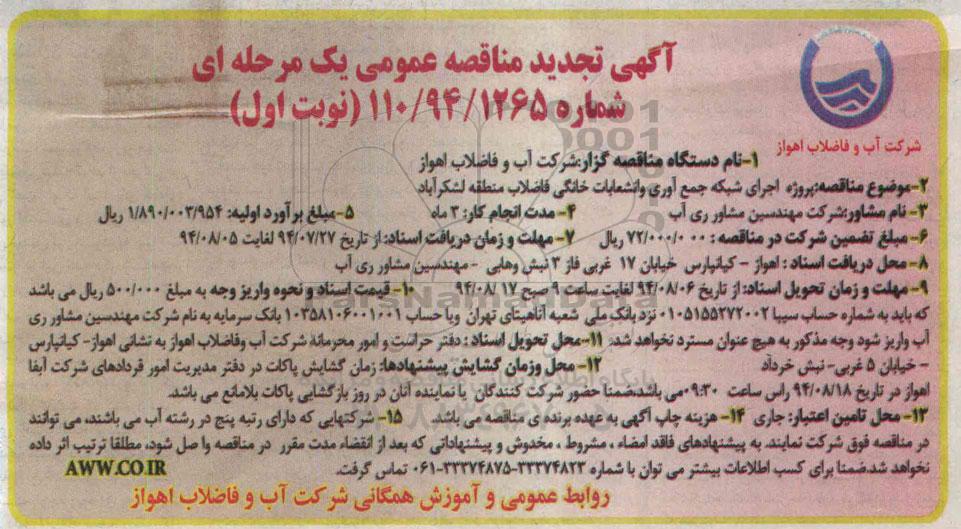 آگهی تجدید مناقصه عمومی یک مرحله ای
شماره ۱۱۰/۹۴/۱۲۶۵ (نوبت اول)
شرکت آب و فاضلاب اهواز
۱-نام دستگاه مناقصه گزار:شرکت آب و فاضلاب اهواز
۲-موضوع مناقصه:پروژه اجرای شبکه جمع آوری وانشعابات خانگی فاضلاب منطقه لشکرآباد
۳- نام مشاور:شرکت مهندسین مشاور ری آب ۴- مدت انجام کار: ۳ ماه ۵-مبلغ برآورد اولیه: ۱/۸۹۰/۰۰۳/۹۵۴ ریال
۶- مبلغ تضمین شرکت در مناقصه : ۷۲/۰۰۰/۰۰۰ ریال ۷- مهلت و زمان دریافت اسناد: از تاریخ ۹۴/۰۷/۲۷ لغایت ۹۴/۰۸/۰۵
۸- محل دریافت اسناد : اهواز - کیانپارس خیابان ۱۷ غربی فاز ۳ نبش وهابی - مهندسین مشاور ری آب
۹- مهلت و زمان تحویل اسناد: از تاریخ ۹۴/۰۸/۰۶ لغایت ساعت ۹ صبح ۹۴/۰۸/۱۷ ۱۰- قیمت اسناد و نحوه واریز وجه به مبلغ ۵۰۰/۰۰۰ ریال می باشد
که باید به شماره حساب سیبا ۰۱۰۵۱۵۵۲۷۲۰۰۲ نزد بانک ملی شعبه آناهیتای تهران ویا حساب ۱۰۳۵۸۱۰۶۰۰۱۰۰۱ بانک سرمایه به نام شرکت مهندسین مشاور ری
آب واریز شود وجه مذکور به هیچ عنوان مسترد نخواهد شد. ۱۱-محل تحویل اسناد : دفتر حراست و امور محرمانه شرکت آب وفاضلاب اهواز به نشانی اهواز- کیانپارس
- خیابان ۵ غربی- نبش خرداد ۱۲- محل وزمان گشایش پیشنهادها: زمان گشایش پاکات در دفتر مدیریت امور قردادهای شرکت آبفا
اهواز در تاریخ ۹۴/۰۸/۱۸ راس ساعت ۰۹:۳۰ می باشد،ضمنا حضور شرکت کنندگان یا نماینده آنان در روز بازگشایی پاکات بلامانع می باشد.
۱۳- محل تامین اعتبار: جاری ۱۴- هزینه چاپ آگهی به عهده برنده ی مناقصه می باشد. ۱۵- شرکتهایی که دارای رتبه پنج در رشته آب می باشند، می توانند
در مناقصه فوق شرکت نمایند. به پیشنهادهای فاقد امضاء ، مشروط ، مخدوش و پیشنهاداتی که بعد از انقضاء مدت مقرر در مناقصه وا صل شود، مطلقا ترتیب اثر داده
نخواهد شد،ضمنا برای کسب اطلاعات بیشتر می توان با شماره ۳۳۳۷۴۸۲۳-۳۳۳۷۴۸۷۵-۰۶۱ تماس گرفت.
AWW.CO.IR
روابط عمومی و آموزش همگانی شرکت آب و فاضلاب اهواز